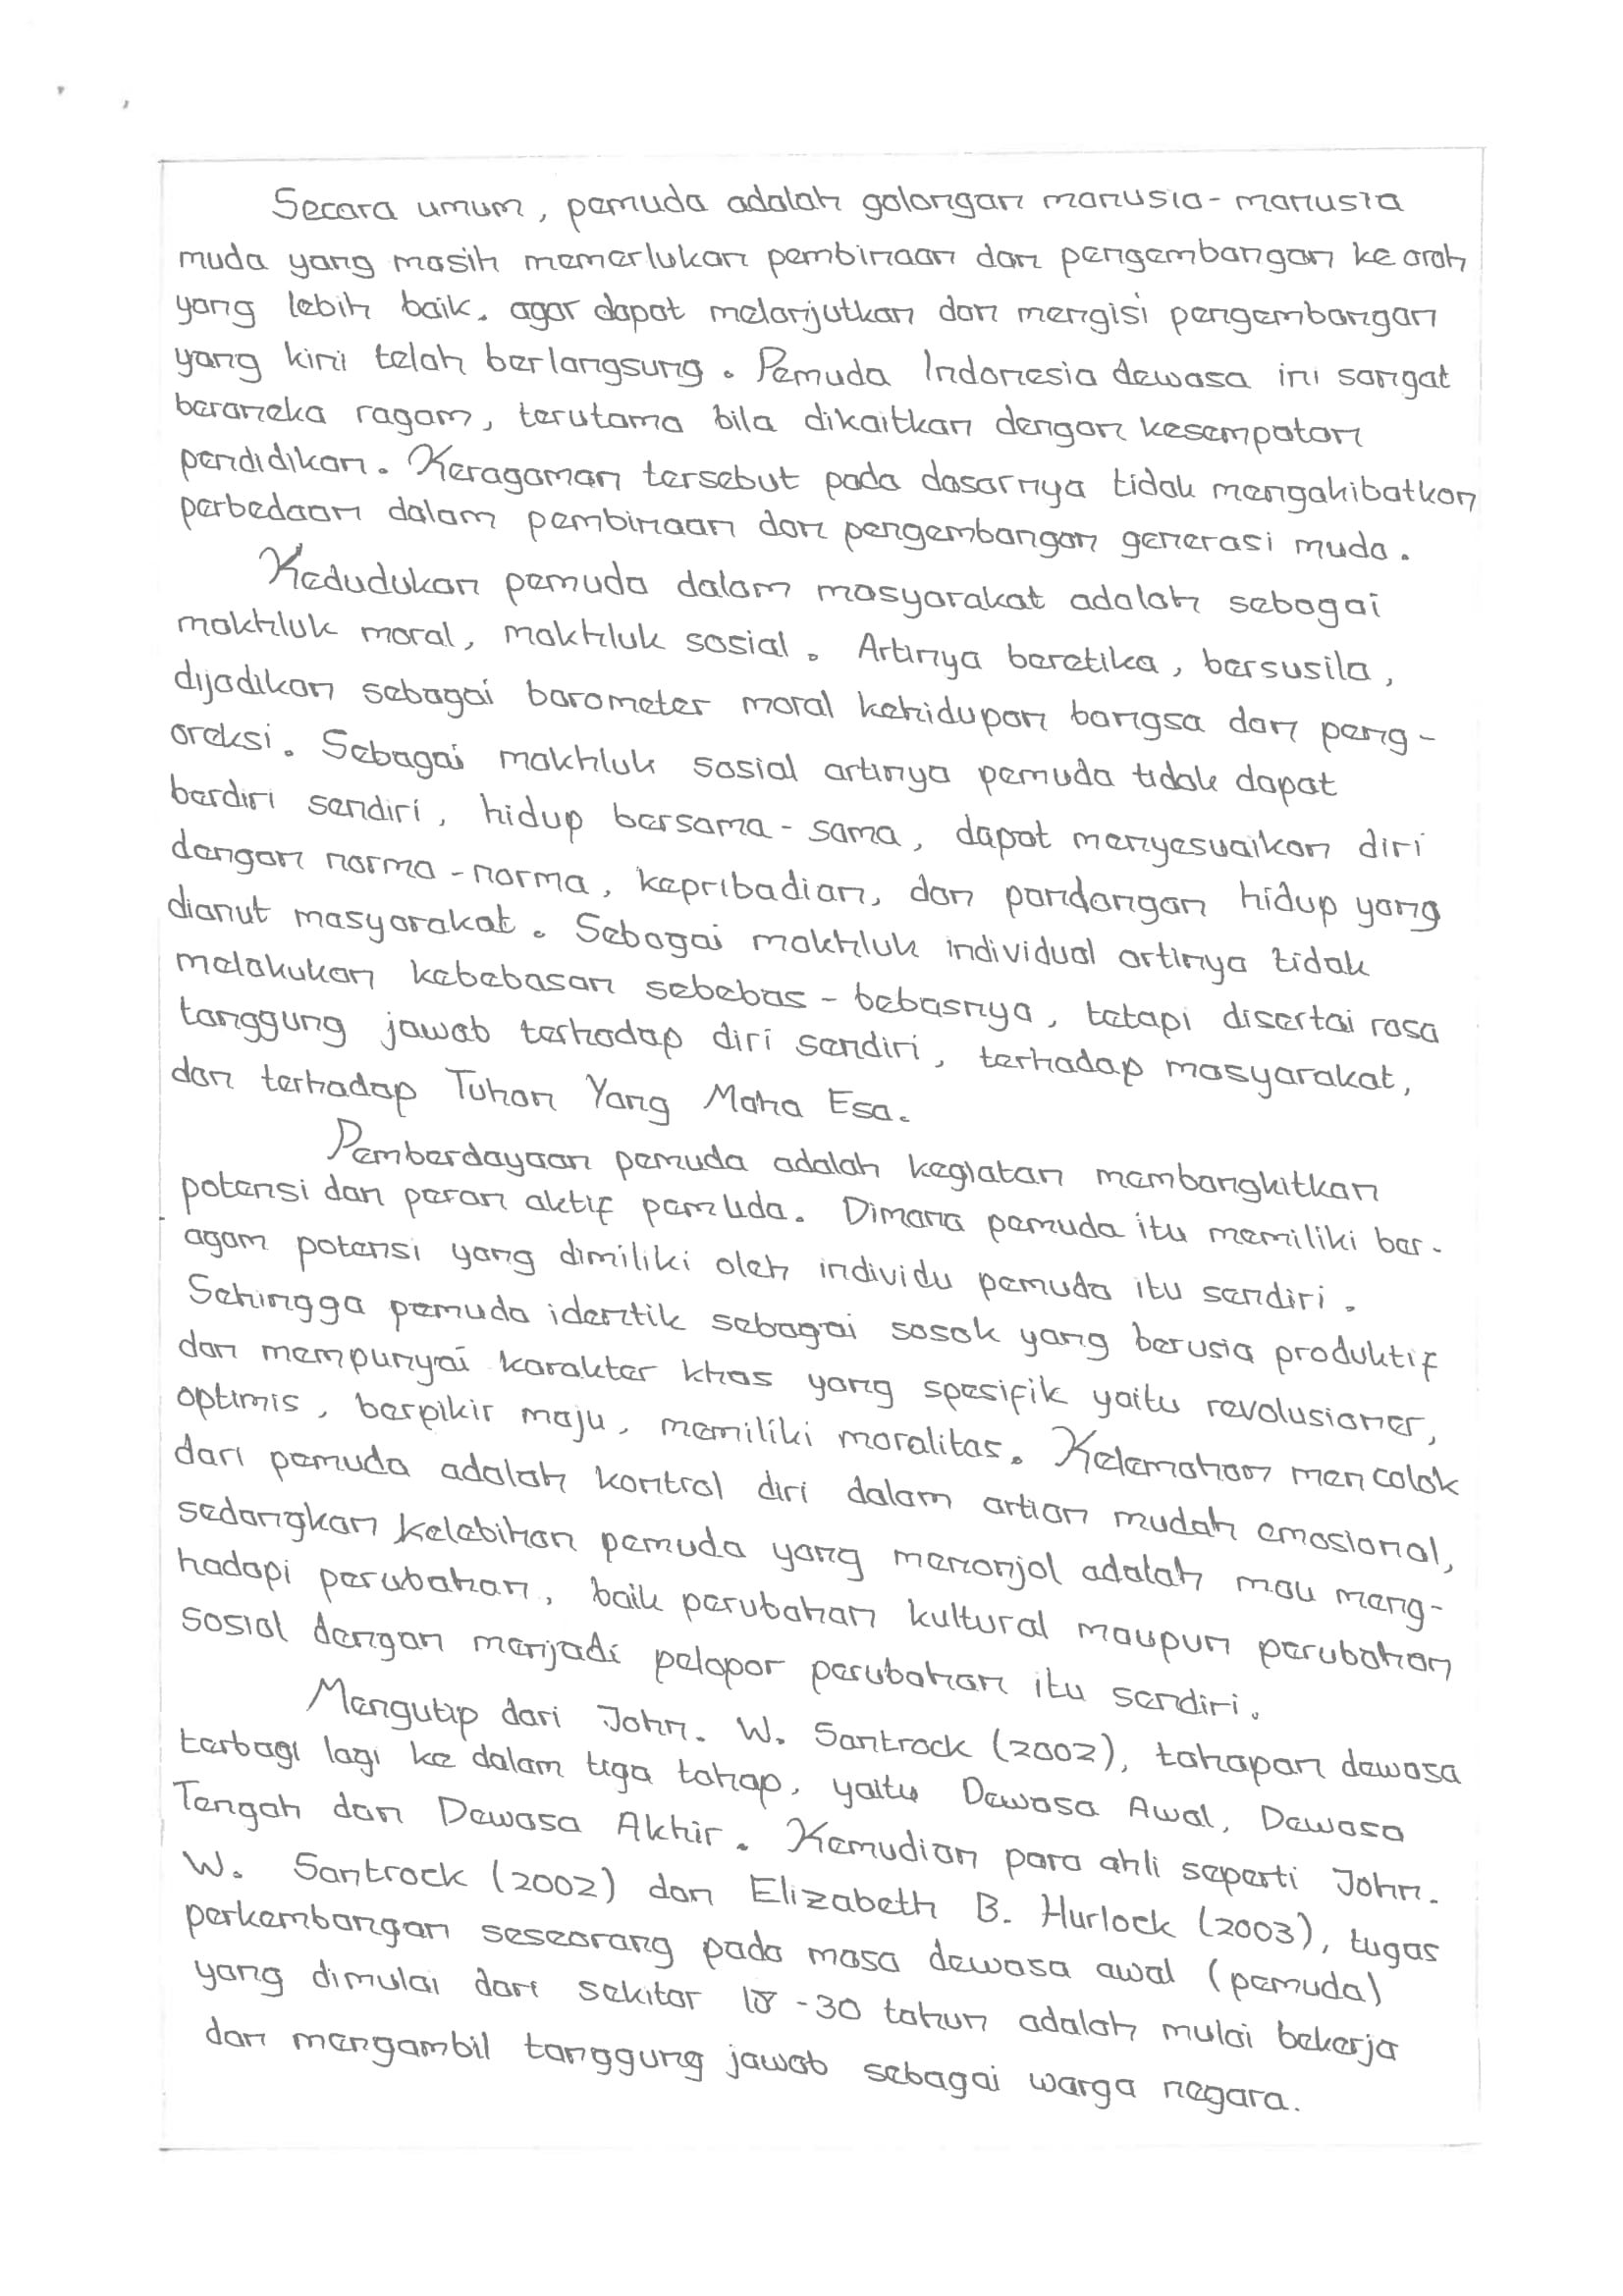 Secara umum, pemuda adalah golongan manusia-manusia
muda yang masih memerlukan pembinaan dan pengembangan ke arah
yang lebih baik. agar dapat melanjutkan dan mengisi pengembangan
yang kini telah berlangsung. Pemuda Indonesia dewasa ini sangat
beraneka ragam, terutama bila dikaitkan dengan kesempatan
pendidikan. Keragaman tersebut pada dasarnya tidak mengakibatkan
perbedaan dalam pembinaan dan pengembangan generasi muda.
Kedudukan pemuda dalam masyarakat adalah sebagai
makhluk moral, makhluk sosial. Artinya beretika, bersusila,
dijadikan sebagai barometer moral kehidupan bangsa dan peng-
oreksi. Sebagai makhluk sosial artinya pemuda tidak dapat
berdiri sendiri, hidup bersama-sama, dapat menyesuaikan diri
dengan norma-norma, kepribadian, dan pandangan hidup yang
dianut masyarakat. Sebagai makhluk individual artinya tidak
melakukan kebebasan sebebas-bebasnya, tetapi disertai rasa
tanggung jawab terhadap diri sendiri, terhadap masyarakat,
dan terhadap Tuhan Yang Maha Esa.
Pemberdayaan pemuda adalah kegiatan membangkitkan
potensi dan peran aktif pemuda. Dimana pemuda itu memiliki ber-
agam potensi yang dimiliki oleh individu pemuda itu sendiri.
Sehingga pemuda identik sebagai sosok yang berusia produktif
dan mempunyai karakter khas yang spesifik yaitu revolusioner,
optimis, berpikir maju, memiliki moralitas. Kelemahan mencolok
dari pemuda adalah kontrol diri dalam artian mudah emosional,
sedangkan kelebihan pemuda yang menonjol adalah mau meng-
hadapi perubahan, baik perubahan kultural maupun perubahan
sosial dengan menjadi pelopor perubahan itu sendiri.
Mengutip dari John. W. Santrock (2002), tahapan dewasa
terbagi lagi ke dalam tiga tahap, yaitu Dewasa Awal, Dewasa
Tengah dan Dewasa Akhir. Kemudian para ahli seperti John.
W. Santrock (2002) dan Elizabeth B. Hurlock (2003), tugas
perkembangan seseorang pada masa dewasa awal (pemuda)
yang dimulai dari sekitar 18-30 tahun adalah mulai bekerja
dan mengambil tanggung jawab sebagai warga negara.